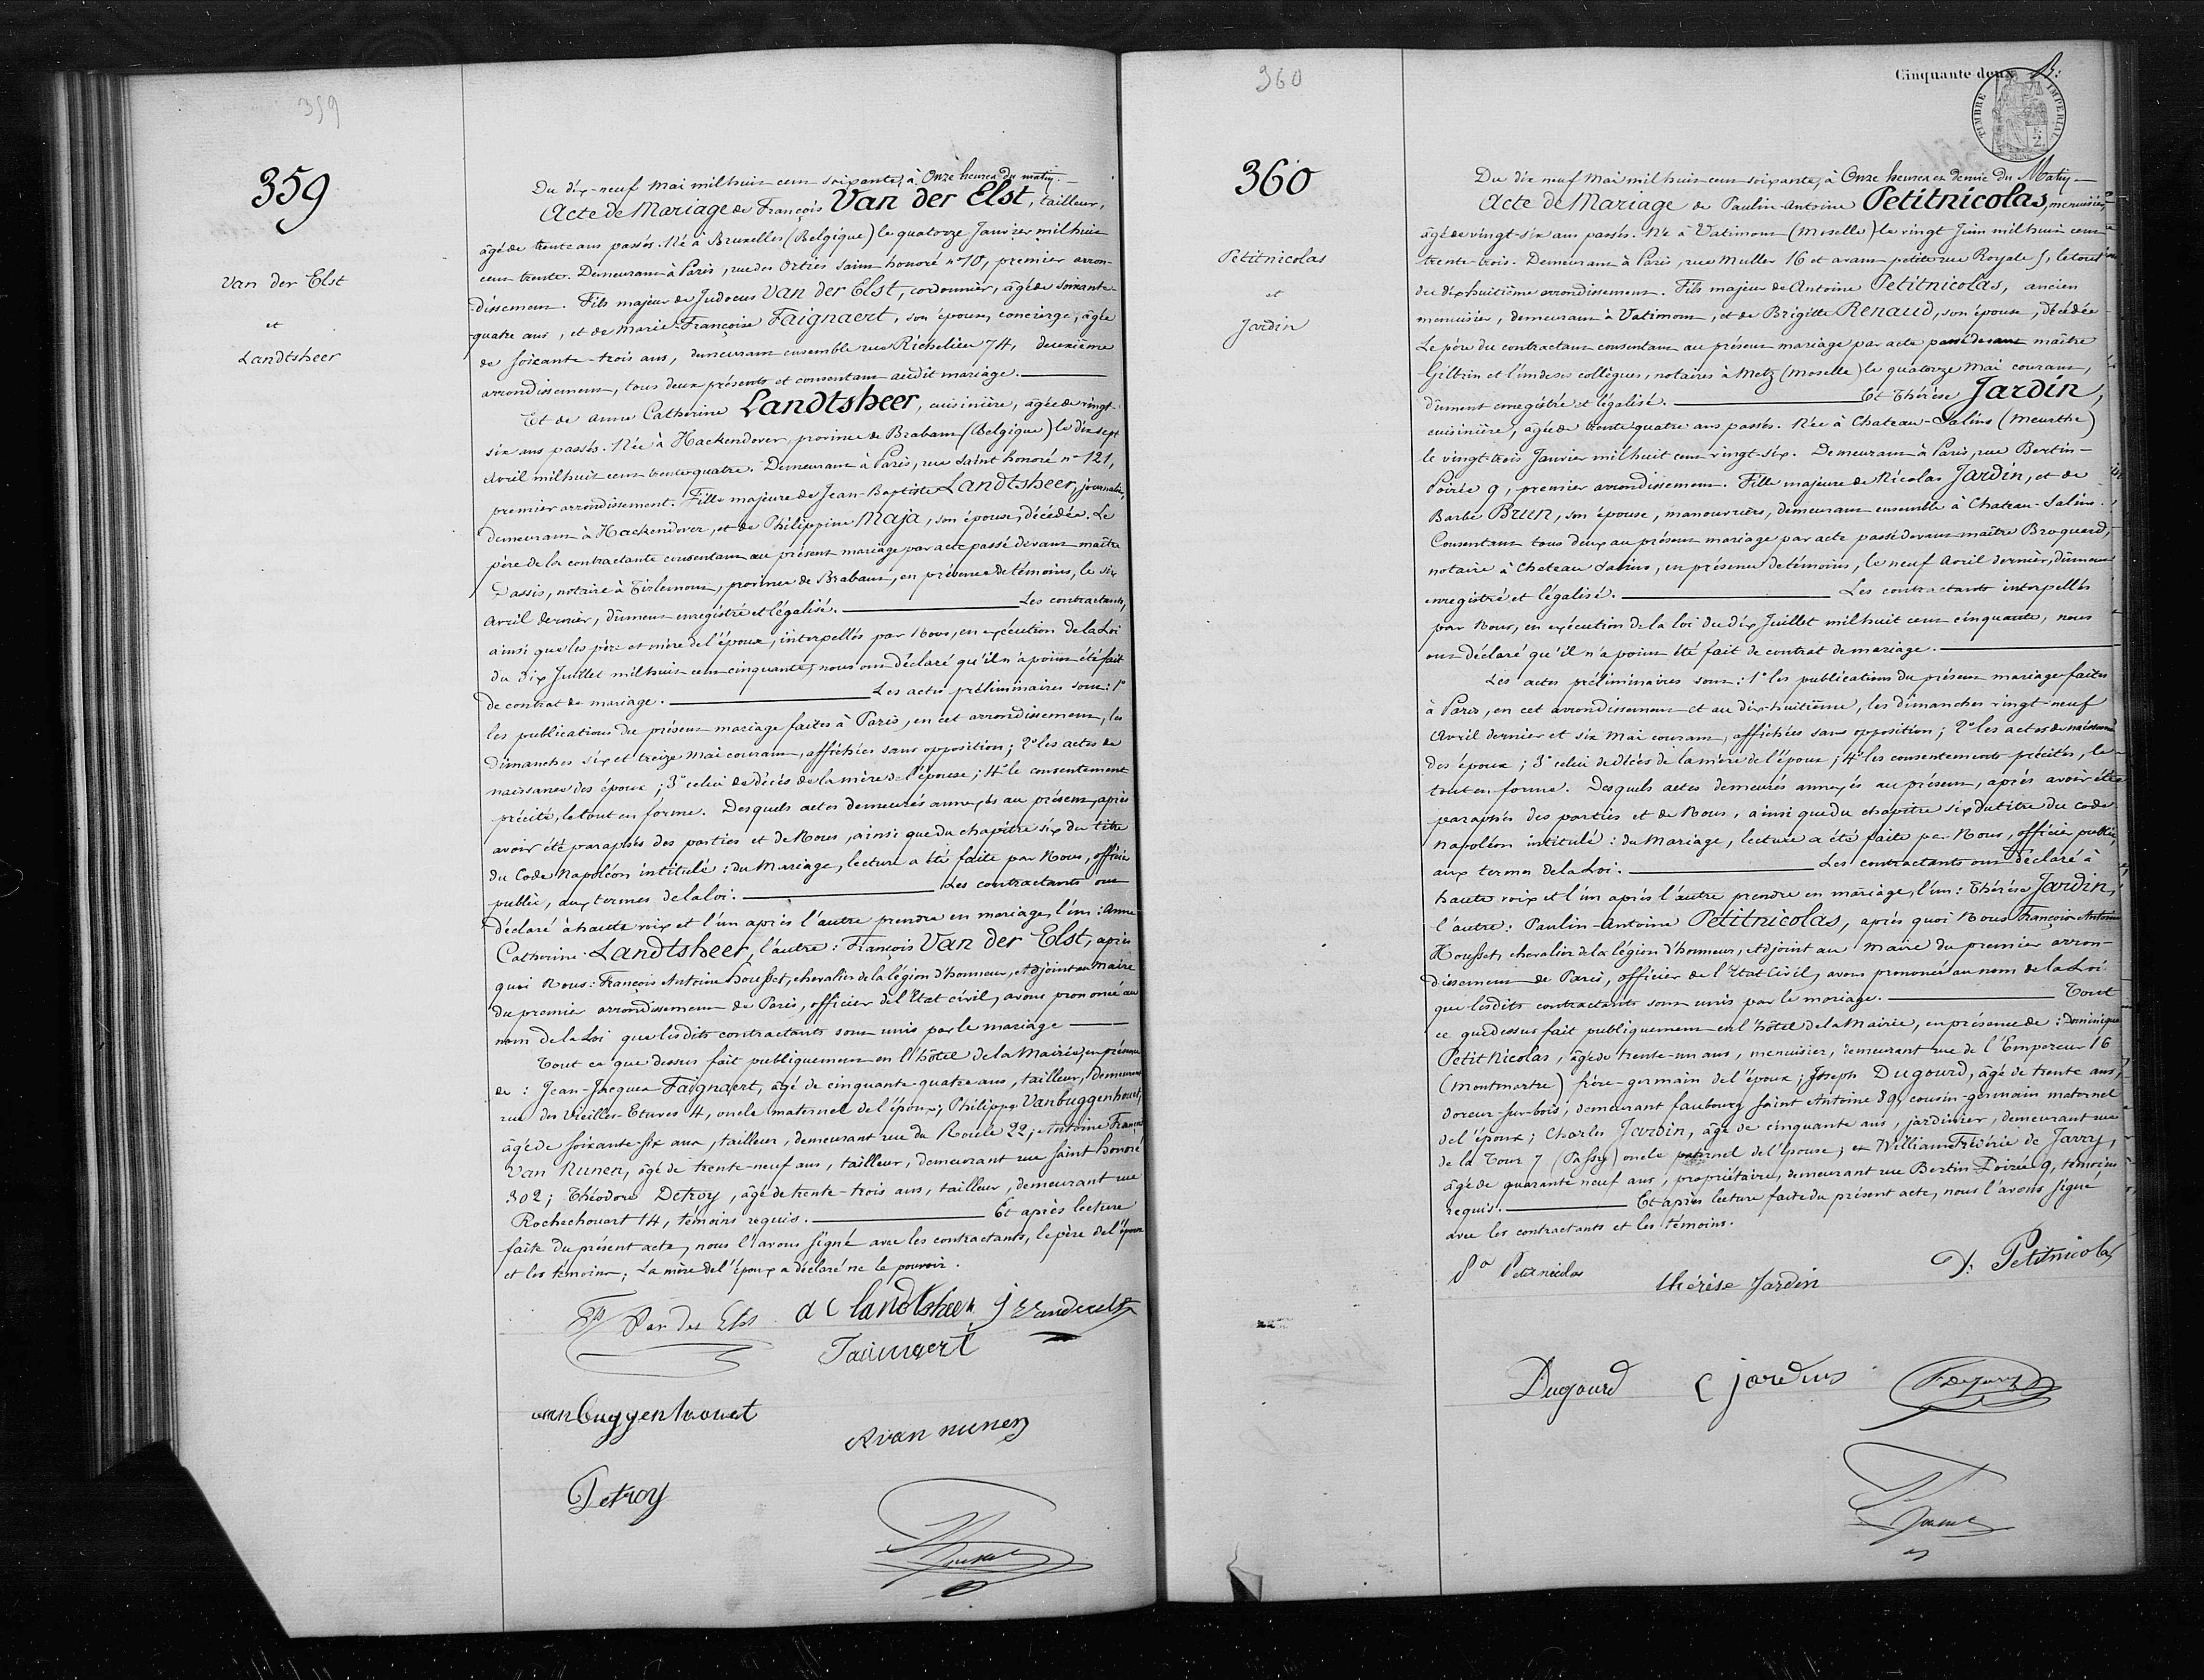 359
359
Van der Elst
et
Landtsheer
Du dix-neuf Mai mil huit cent soixante, à Onze heures du matin.
Acte de Mariage de François Van der Elst, tailleur,
âgé de trente ans passés. Né à Bruxelles (Belgique) le quatorze Janvier mil huit
cent trente. Demeurant à Paris, rue des Orties Saint honoré n° 10, premier arron-
dissement. Fils majeur de Judocus Van der Elst, cordonnier, âgé de soixante-
quatre ans, et de Marie-Françoise Faignaert, son épouse, concierge, âgée
de soixante-trois ans, demeurant ensemble rue Richelieu 74, deuxième
arrondissement, tous deux présents et consentant audit mariage.
Et de Anne Catherine Landtsheer, cuisinière, âgée de vingt-
six ans passés. Née à Hackendover, province de Brabant (Belgique) le dix sept
Avril mil huit cent trente quatre. Demeurant à Paris, rue Saint honoré n° 121,
premier arrondissement. Fille majeure de Jean-Baptiste Landtsheer, journalier,
demeurant à Hackendover, et de Philippine Maja, son épouse, décédée. Le
père de la contractante consentant au présent mariage par acte passé devant maître
Dassis, notaire à Tirlemont, province de Brabant, en présence de témoins, le six
Avril dernier, dûment enregistré et légalisé. Les contractants,
ainsi que les père et mère de l'époux, interpellés par Nous, en exécution de la Loi
du dix Juillet mil huit cent cinquante, nous ont déclaré qu'il n'a point été fait
de contrat de mariage. Les actes préliminaires sont: 1°
les publications du présent mariage faites à Paris, en cet arrondissement, les
dimanches six et treize Mai courant, affichées sans opposition; 2° les actes de
naissance des époux; 3° celui de décès de la mère de l'épouse; 4° le consentement
précité, le tout en forme. Desquels actes demeurés annexés au présent, après
avoir été paraphés des parties et de Nous, ainsi que du chapitre six du titre
du Code Napoléon intitulé: du Mariage, lecture a été faite par Nous, officier
public, aux termes de la loi. Les contractants ont
déclaré à haute voix et l'un après l'autre prendre en mariage, l'un: Anne
Catherine Landtsheer, l'autre: François Van der Elst, après
quoi Nous: François Antoine Housset, chevalier de la légion d'honneur, Adjoint au Maire
du premier arrondissement de Paris, officier de l'Etat civil, avons prononcé au
nom de la Loi que lesdits contractants sont unis par le mariage
Tout ce que dessus fait publiquement en l'hôtel de la Mairie, en présence
de: Jean-Jacques Faignaert, âgé de cinquante-quatre ans, tailleur, demeurant
rue des Vieilles-Etuves 4, oncle maternel de l'époux; Philippe Vanbuggenhout,
âgé de soixante-six ans, tailleur, demeurant rue du Roule 22; Antoine François
Van Nunen, âgé de trente-neuf ans, tailleur, demeurant rue Saint honoré
302; Théodore Detroy, âgé de trente-trois ans, tailleur, demeurant rue
Rochechouart 14, témoins requis. Et après lecture
faite du présent acte, nous l'avons signé avec les contractants, le père de l'époux
et les témoins; La mère de l'époux a déclaré ne le pouvoir.
Van der Elst A C landtsheer J Vanderelst
Faiingaert
vanbuggenhouet
A van nunen
Detroy
Housset
360
360
Petitnicolas
et
Jardin
Cinquante deux
TIMBRE IMPERIAL
Du dix neuf Mai mil huit cent soixante, à Onze heures et demie du Matin
Acte de Mariage de Paulin-Antoine Petitnicolas, menuisier,
âgé de vingt-six ans passés. Né à Vatimont (Moselle) le vingt Juin mil huit cent
trente-trois. Demeurant à Paris, rue Muller 16 et avant petite rue Royale 5, le tout
du dix huitième arrondissement. Fils majeur de Antoine Petitnicolas, ancien
menuisier, demeurant à Vatimont, et de Brigitte Renaud, son épouse, décédée
Le père du contractant consentant au présent mariage par acte passé devant maître
Gilbrin et l'un de ses collègues, notaires à Metz (Moselle) le quatorze Mai courant,
dûment enregistré et légalisé. Et Thérèse Jardin,
cuisinière, âgée de trente quatre ans passés. Née à Chateau-Salins (Meurthe)
le vingt-trois Janvier mil huit cent vingt-six. Demeurant à Paris, rue Bertin-
Poirée 9, premier arrondissement. Fille majeure de Nicolas Jardin, et de
Barbe Brun, son épouse, manouvriers, demeurant ensemble à Chateau-Salins.
Consentant tous deux au présent mariage par acte passé devant maître Broquard,
notaire à Chateau Salins, en présence de témoins, le neuf Avril dernier, dûment
enregistré et légalisé. Les contractants interpellés
par Nous, en exécution de la loi du dix Juillet mil huit cent cinquante, nous
ont déclaré qu'il n'a point été fait de contrat de mariage.
Les actes préliminaires sont: 1° les publications du présent mariage faites
à Paris, en cet arrondissement et au dix-huitième, les dimanches vingt-neuf
Avril dernier et six Mai courant, affichées sans opposition; 2° les actes de naissance
des époux; 3° celui de décès de la mère de l'époux; 4° les consentements précités, le
tout en forme. Desquels actes demeurés annexés au présent, après avoir été
paraphés des parties et de Nous, ainsi que du chapitre six du titre du Code
Napoléon intitulé: du Mariage, lecture a été faite par Nous, officier public,
aux termes de la Loi. Les contractants ont déclaré à
haute voix et l'un après l'autre prendre en mariage, l'un: Thérèse Jardin,
l'autre: Paulin-Antoine Petitnicolas, après quoi Nous François Antoine
Housset, chevalier de la légion d'honneur, Adjoint au Maire du premier arron-
dissement de Paris, officier de l'Etat Civil, avons prononcé au nom de la Loi
que lesdits contractants sont unis par le mariage. Tout
ce que dessus fait publiquement en l'hôtel de la Mairie, en présence de: Dominique
Petit Nicolas, âgé de trente-un ans, menuisier, demeurant rue de l'Empereur 16
(Montmartre) frère-germain de l'époux; Joseph Dugourd, âgé de trente ans,
doreur-sur-bois, demeurant faubourg Saint Antoine 89, cousin-germain maternel
de l'époux; Charles Jardin, âgé de cinquante ans, jardinier, demeurant rue
de la Tour 7 (Passy) oncle paternel de l'épouse; et William Frédéric de Jarry,
âgé de quarante neuf ans, propriétaire, demeurant rue Bertin Poirée 9, témoins
requis. Et après lecture faite du présent acte, nous l'avons signé
avec les contractants et les témoins.
Petitnicolas thérèse Jardin D. Petitnicolas
Dugourd C jardin
Housset